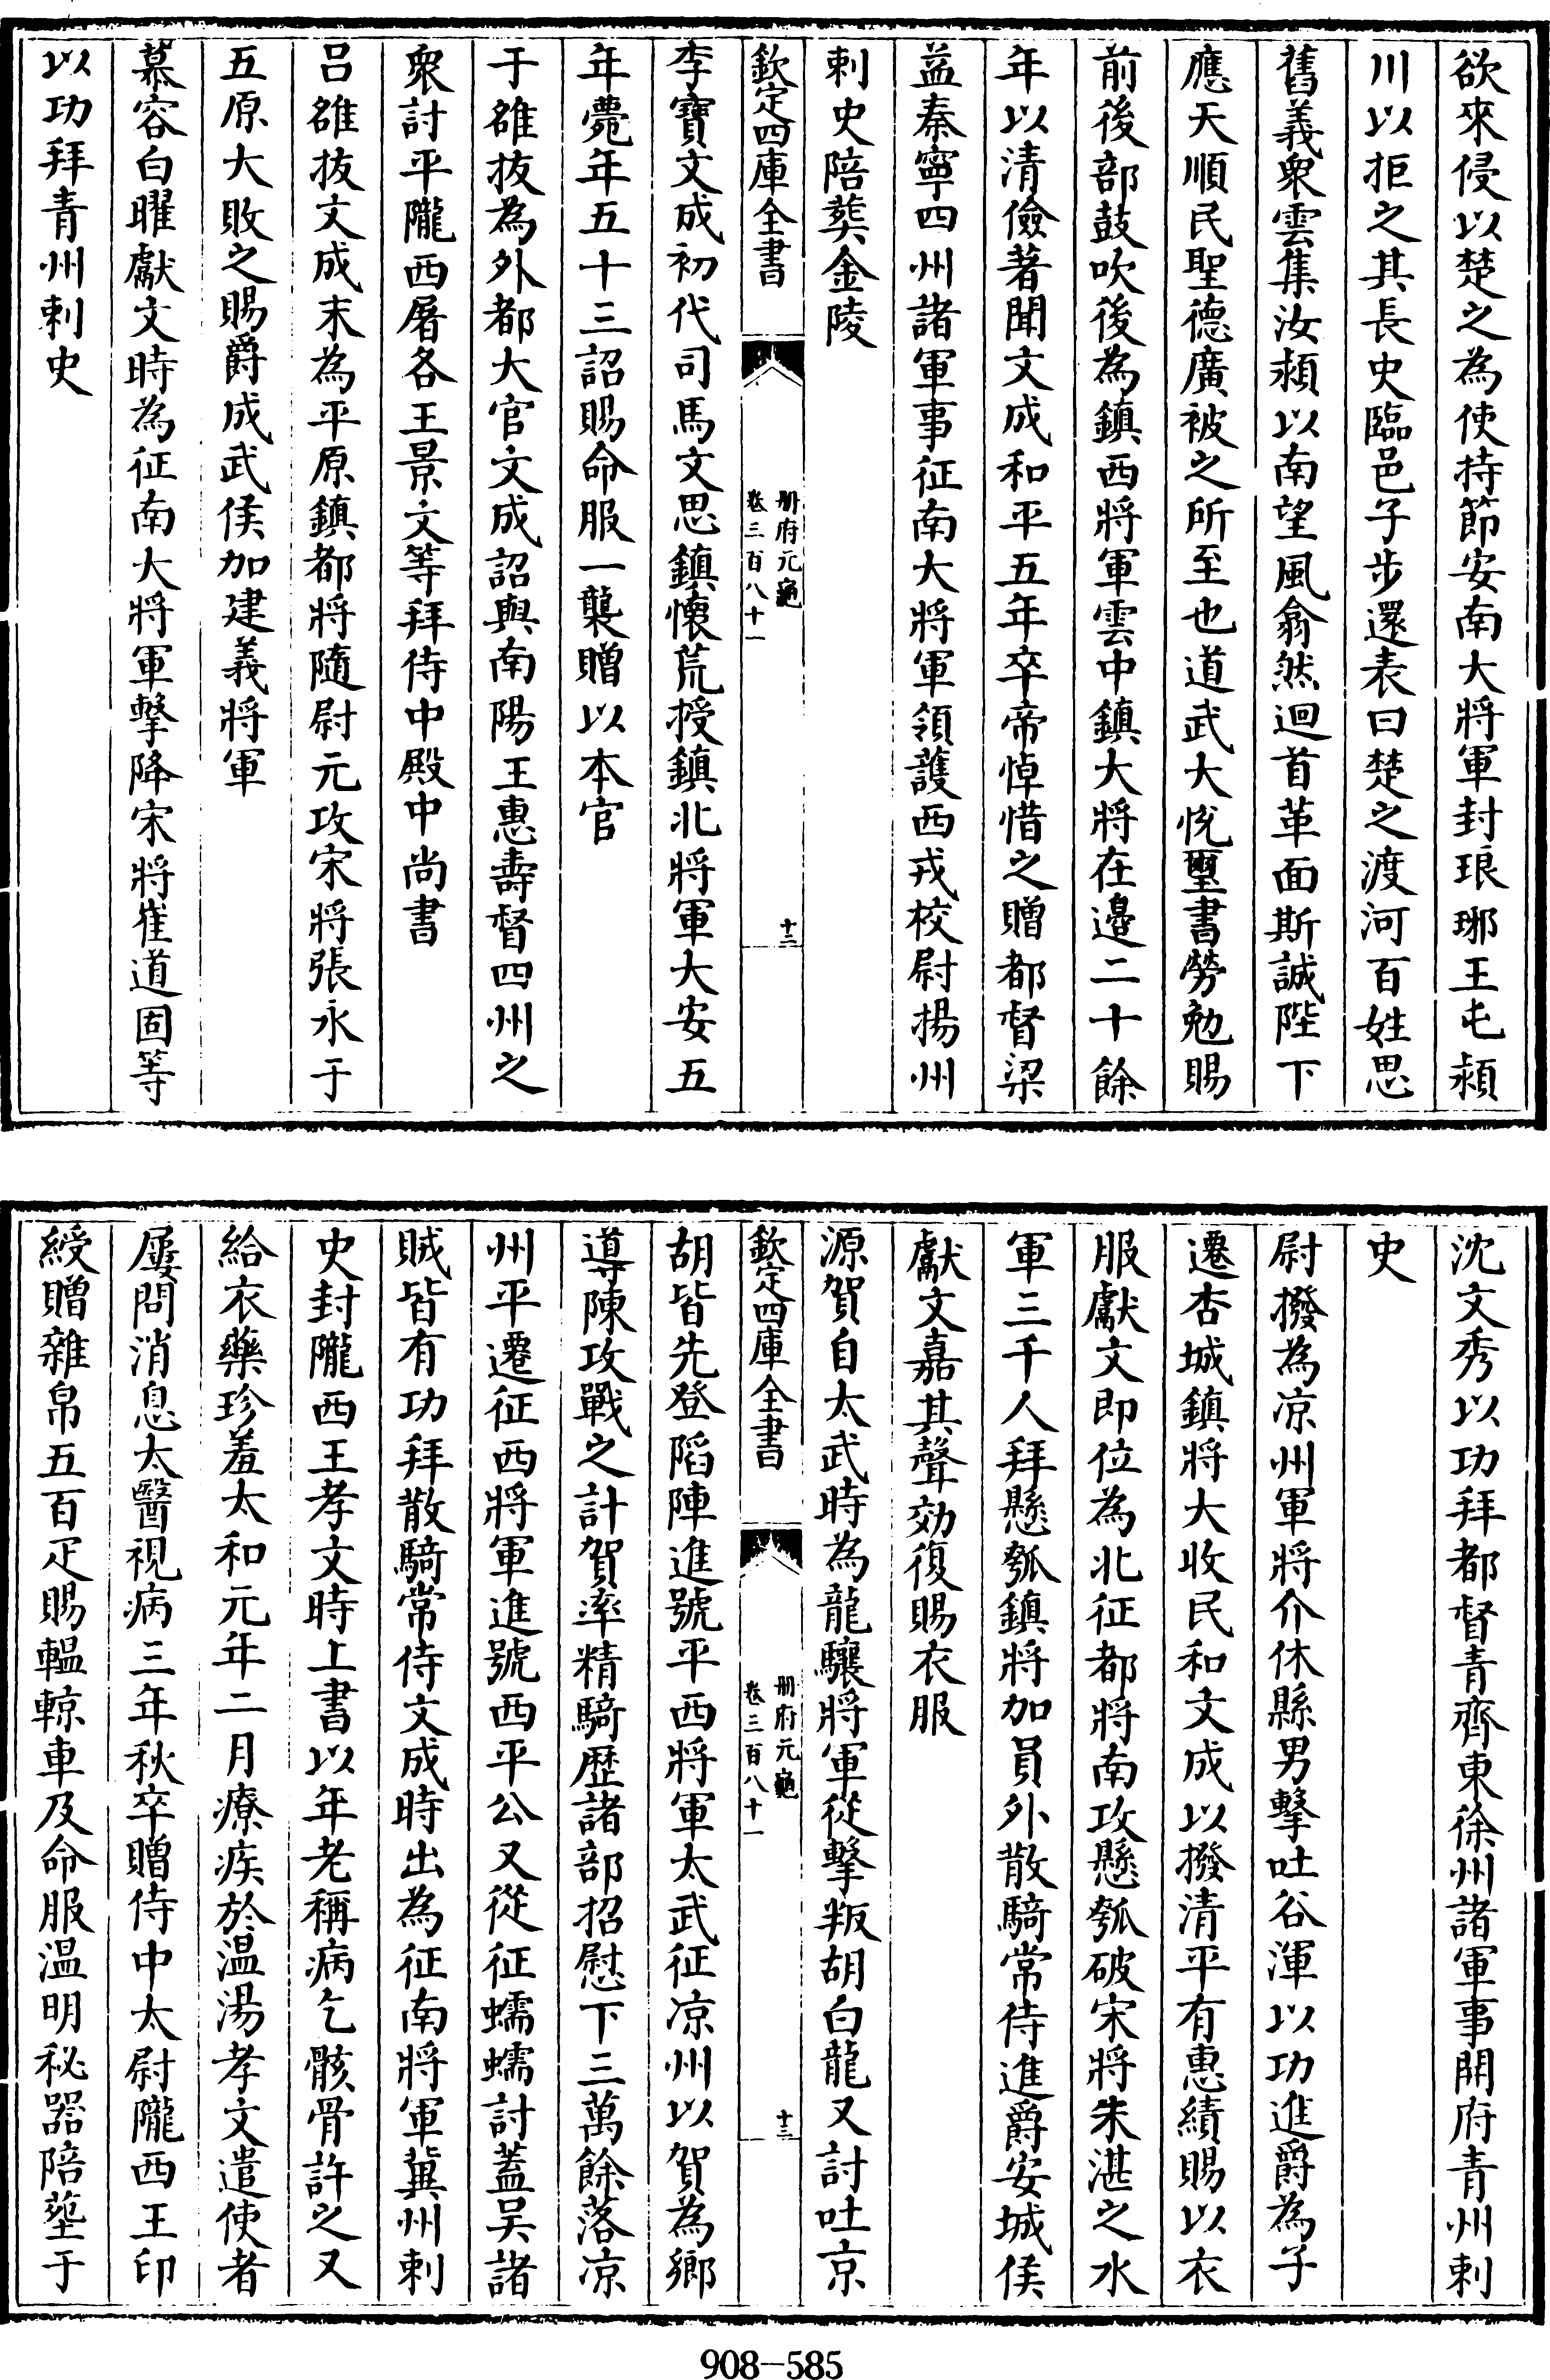 欲來侵以楚之為使持節安南大將軍封琅琊王屯潁
川以拒之其長史臨邑子步還表曰楚之渡河百姓思
舊義衆雲集汝潁以南望風翕然迴首革面斯誠陛下
應天順民聖德廣被之所至也道武大悅璽書勞勉賜
前後部鼓吹後為鎮西將軍雲中鎮大將在邊二十餘
年以清儉著聞文成和平五年卒帝悼惜之贈都督梁
益秦寧四州諸軍事征南大將軍領護西戎校尉揚州
刺史陪葬金陵
欽定四庫全書
册府元龜
卷三百八十一
十二
李寶文成初代司馬文思鎮懷荒授鎮北將軍大安五
年薨年五十三詔賜命服一襲贈以本官
于雒拔為外都大官文成詔與南陽王惠壽督四州之
衆討平隴西屠各王景文等拜侍中殿中尚書
吕雒抜文成末為平原鎮都將隨尉元攻宋將張永于
五原大敗之賜爵成武侯加建義將軍
慕容白曜獻文時為征南大將軍擊降宋將崔道固等
以功拜青州刺史
沈文秀以功拜都督青齊東徐州諸軍事開府青州刺
史
尉撥為凉州軍將介休縣男擊吐谷渾以功進爵為子
遷杏城鎮將大收民和文成以撥清平有惠績賜以衣
服獻文即位為北征都將南攻懸瓠破宋將朱湛之水
軍三千人拜懸瓠鎮將加員外散騎常侍進爵安城侯
獻文嘉其聲効復賜衣服
源賀自太武時為龍驤將軍從擊叛胡白龍又討吐京
欽定四庫全書
册府元龜
卷三百八十一
十三
胡皆先登陷陣進號平西將軍太武征凉州以賀為鄉
導陳攻戰之計賀率精騎歷諸部招慰下三萬餘落凉
州平遷征西將軍進號西平公又從征蠕蠕討蓋吴諸
賊皆有功拜散騎常侍文成時出為征南將軍冀州刺
史封隴西王孝文時上書以年老稱病乞骸骨許之又
給衣藥珍羞太和元年二月療疾於温湯孝文遣使者
屢問消息太醫視病三年秋卒贈侍中太尉隴西王印
綬贈雜帛五百疋賜轀輬車及命服温明秘器陪塟于
908-585